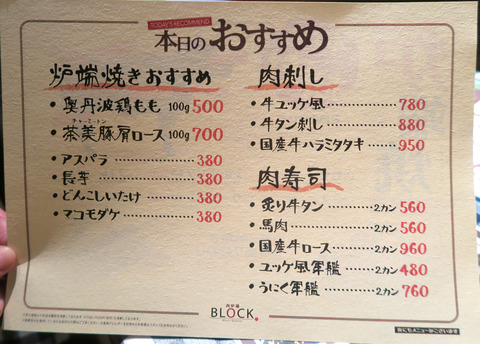 TODAY'S RECOMMEND
本日のおすすめ
炉端焼きおすすめ
・奥丹波鶏もも 100g 500
チャーミートン
・茶美豚肩ロース 100g 700
・アスパラ 380
・長芋 380
・どんこしいたけ 380
・マコモダケ 380
肉刺し
・牛ユッケ風 780
・牛タン刺し 880
・国産牛ハラミタタキ 950
肉寿司
・炙り牛タン 2カン 560
・馬肉 2カン 560
・国産牛ロース 2カン 960
・ユッケ風軍艦 2カン 480
・うにく軍艦 2カン 760
BLOCK.